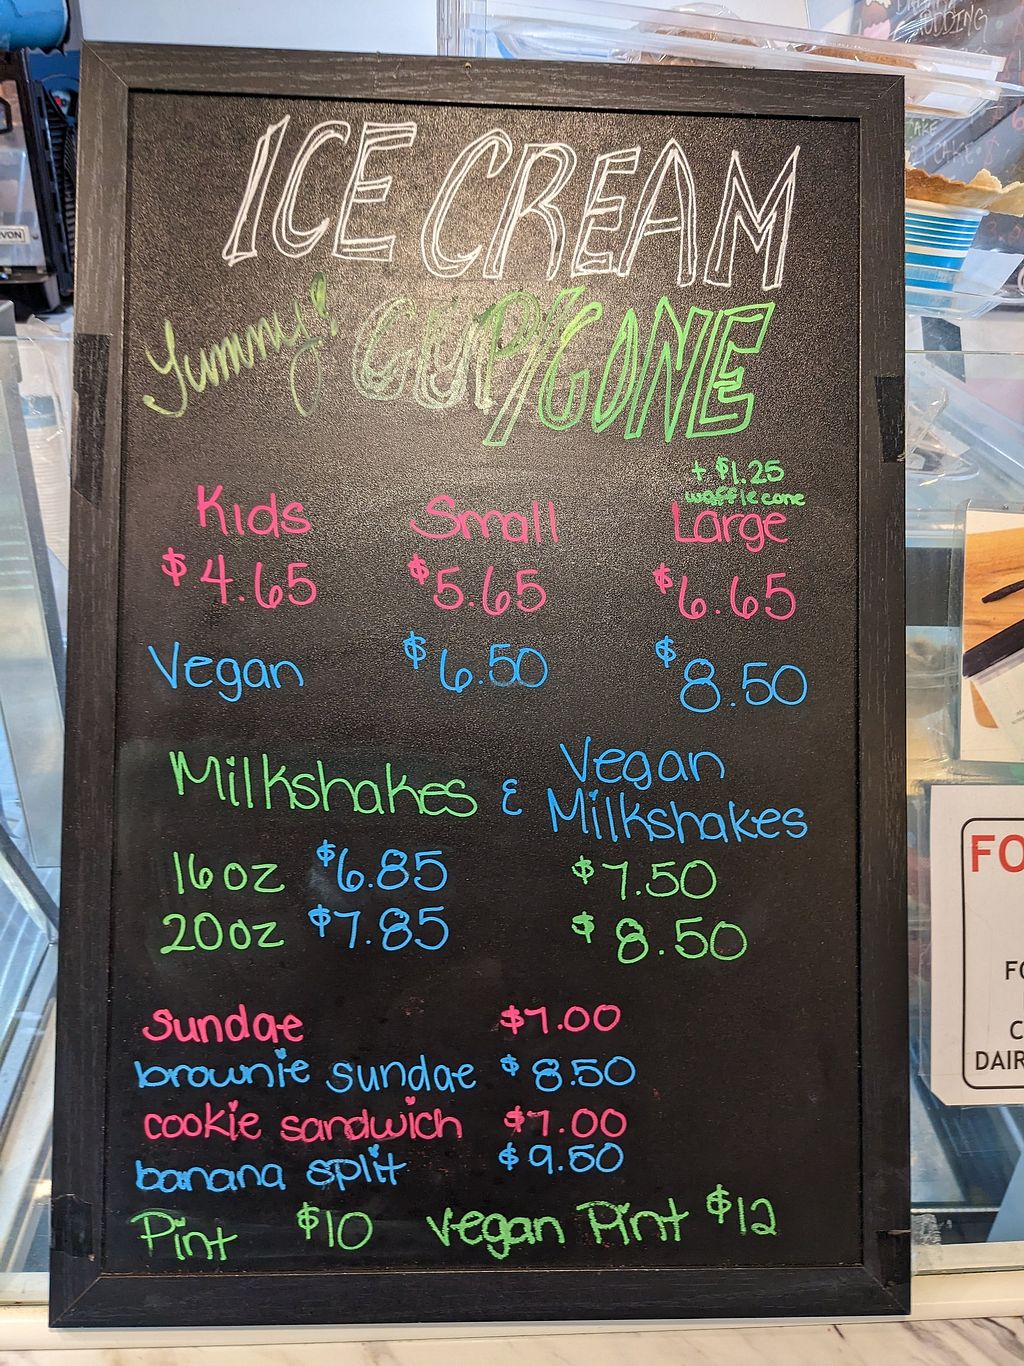 ICE CREAM
Yummy! CUP/CONE
+ $1.25
waffle cone
Kids Small Large
$4.65 $5.65 $6.65
Vegan $6.50 $8.50
Milkshakes & Vegan Milkshakes
16oz $6.85 $7.50
20oz $7.85 $8.50
sundae $7.00
brownie sundae $8.50
cookie sandwich $7.00
banana split $9.50
Pint $10 Vegan Pint $12
PUDDING
CAKE
VON
FO
FO
C
DAIR